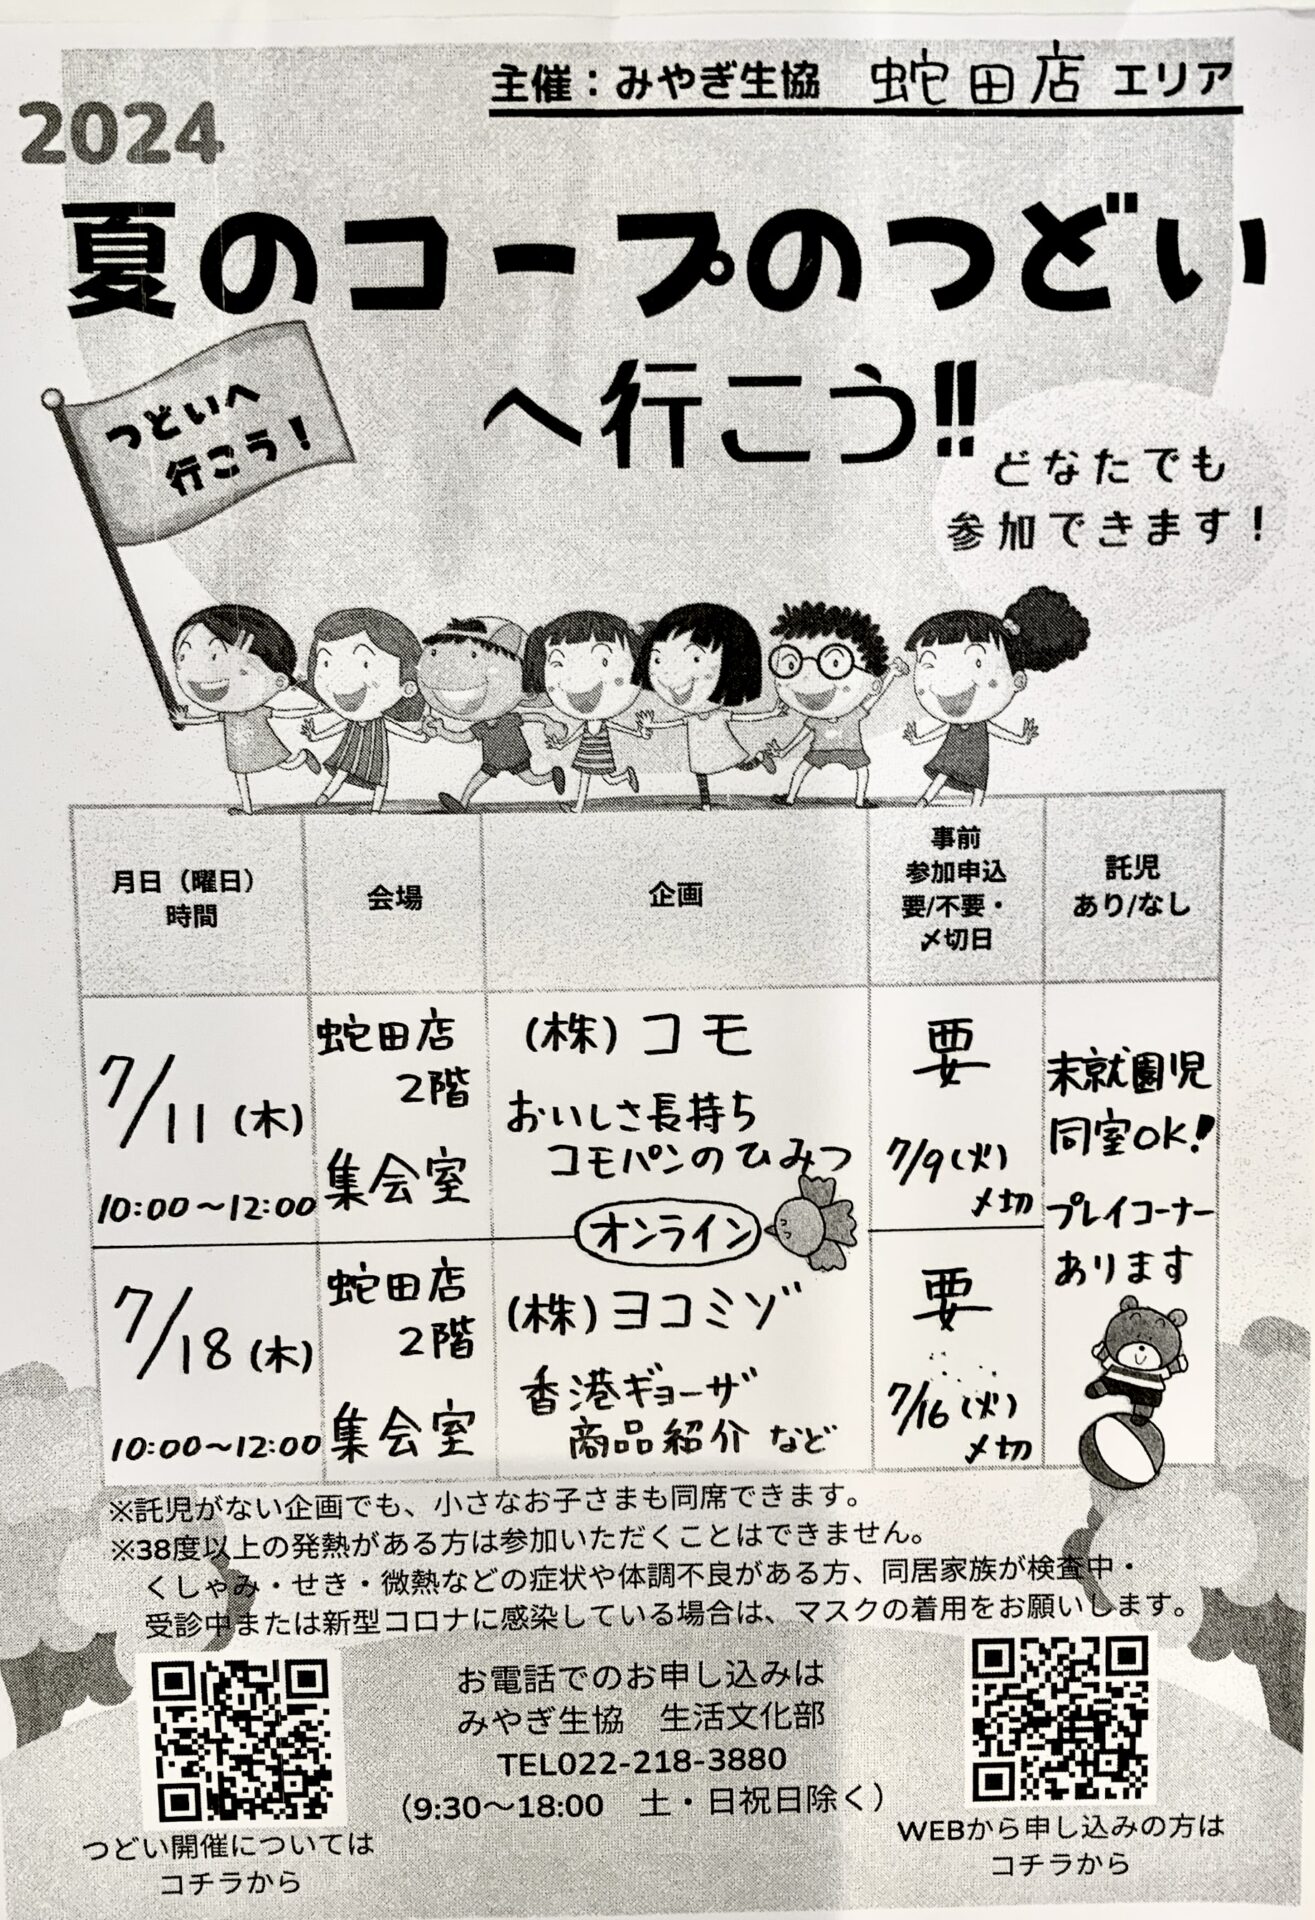 主催：みやぎ生協 蛇田店 エリア
2024
夏のコープのつどい
へ行こう!!
つどいへ
行こう！
どなたでも
参加できます！
月日（曜日）
時間
会場
企画
事前
参加申込
要/不要・
〆切日
託児
あり/なし
7/11(木)
10:00～12:00
蛇田店
2階
集会室
(株)コモ
おいしさ長持ち
コモパンのひみつ
オンライン
要
7/9(火)
〆切
未就園児
同室OK!
プレイコーナー
あります
7/18(木)
10:00～12:00
蛇田店
2階
集会室
(株)ヨコミゾ
香港ギョーザ
商品紹介 など
要
7/16(火)
〆切
※託児がない企画でも、小さなお子さまも同席できます。
※38度以上の発熱がある方は参加いただくことはできません。
くしゃみ・せき・微熱などの症状や体調不良がある方、同居家族が検査中・
受診中または新型コロナに感染している場合は、マスクの着用をお願いします。
お電話でのお申し込みは
みやぎ生協 生活文化部
TEL022-218-3880
（9:30～18:00 土・日祝日除く）
つどい開催については
コチラから
WEBから申し込みの方は
コチラから